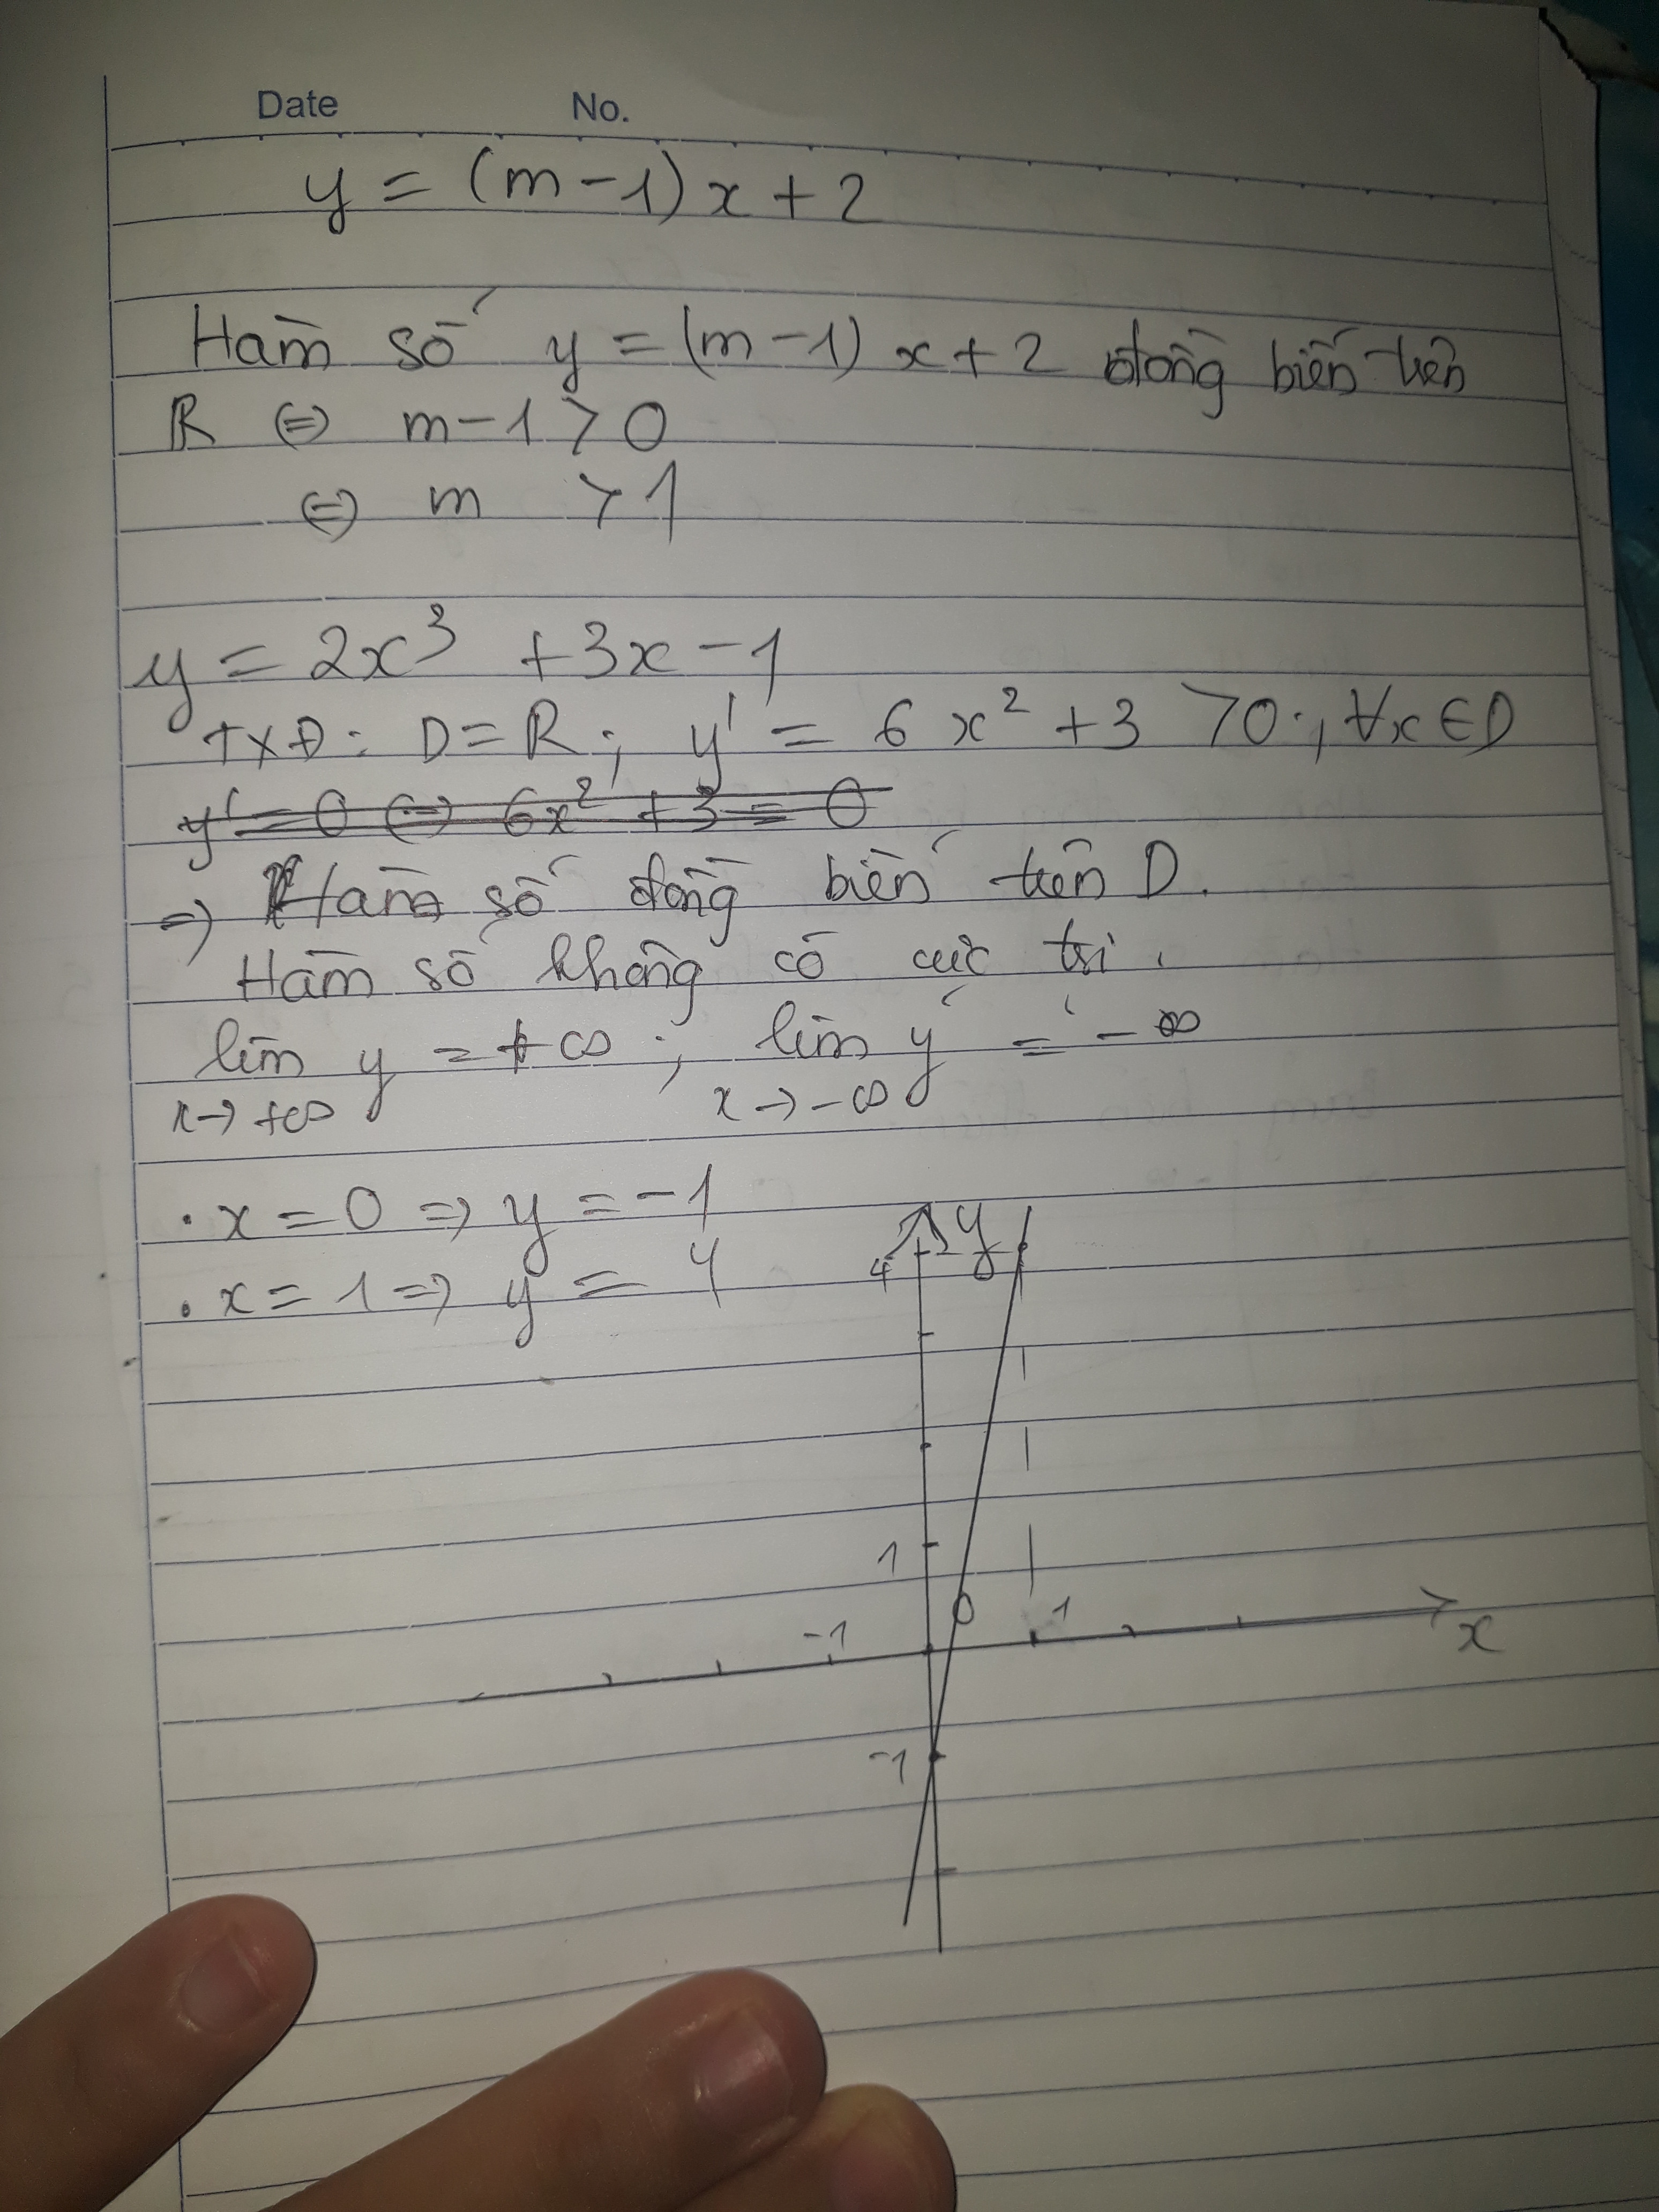 Date No.
y = (m-1)x+2
Hàm số y = (m-1)x+2 đồng biến trên
R ⇔ m-1 > 0
⇔ m > 1
y = 2x³ + 3x - 1
TXĐ: D = R; y' = 6x² + 3 > 0, ∀x ∈ D
y' = 0 ⇔ 6x² + 3 = 0
⇒ Hàm số đồng biến trên D.
Hàm số không có cực trị.
lim y = +∞; lim y = -∞
x→+∞ x→-∞
· x = 0 ⇒ y = -1
y
· x = 1 ⇒ y = 4
4
1
0 1
-1 x
-1